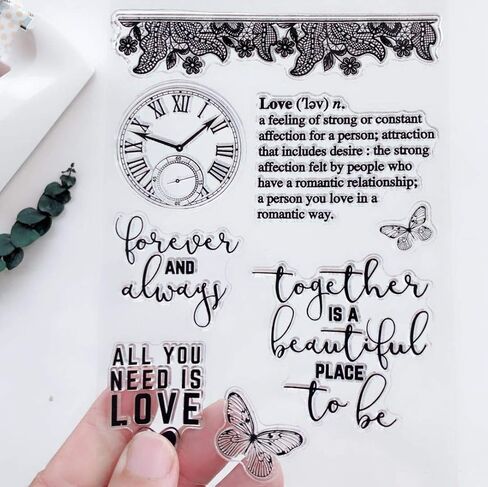 XII
I
II
III
IIII
V
VI
VII
VIII
IX
X
XI
Love ('ləv) n.
a feeling of strong or constant
affection for a person; attraction
that includes desire : the strong
affection felt by people who
have a romantic relationship;
a person you love in a
romantic way.
forever
AND
always
together
IS A
beautiful
PLACE
to be
ALL YOU
NEED IS
LOVE